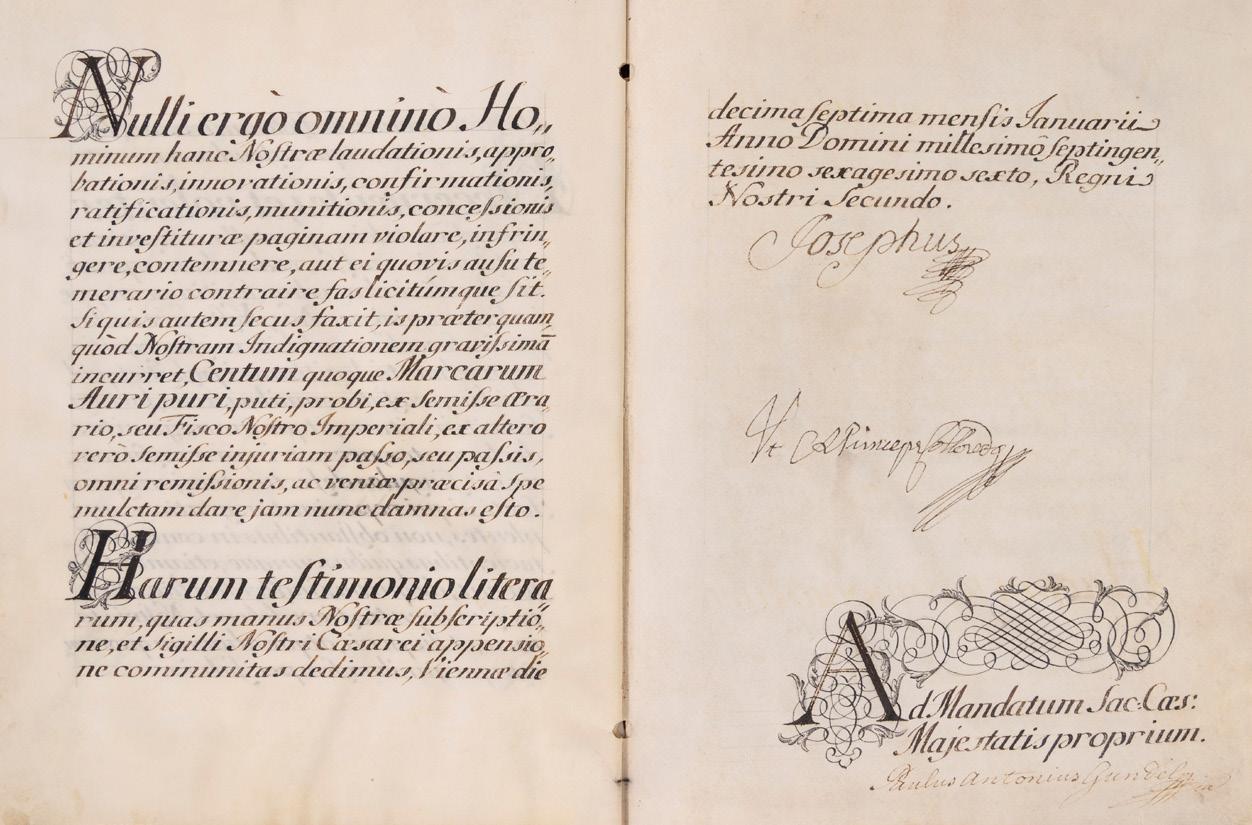 Nulli ergò omninò Ho„
minum hanc Noſtræ laudationis, appro„
bationis, innovationis, confirmationis,
ratificationis, munitionis, conceſsionis
et inveſtituræ paginam violare, infrin„
gere, contemnere, aut ei quovis auſu te„
merario contraire fas licitúmque ſit.
Si quis autem ſecus faxit, is præterquam„
quòd Noſtram Indignationem graviſsimā
incurret, Centum quoque Marcarum
Auri puri, puti, probi, ex Semiſse Æra„
rio, seu Fisco Noſtro Imperiali, ex altero
verò Semiſse injuriam paſso, seu paſsis,
omni remiſsionis, ac veniæ præcisâ spe
mulctam dare jam nunc damnas eſto.
Harum teſtimonio litera„
rum, quas manus Noſtræ subscriptiō„
ne, et Sigilli Noſtri Cæsarei appensio„
ne communitas dedimus, Viennæ die
decima ſeptima menſis Januarii
Anno Domini millesimô ſeptingen„
tesimo sexagesimo sexto, Regni
Noſtri Secundo.
Josephus
Vt
Ad Mandatum Sac: Cæs:
Majestatis proprium.
Paulus Antonius Gundel